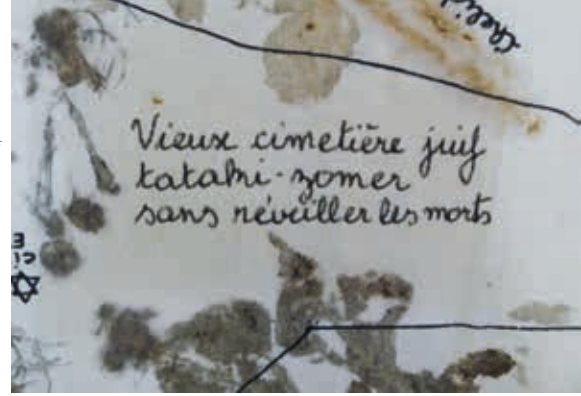 Vieux cimetière juif
tatami-zomer
sans réveiller les morts